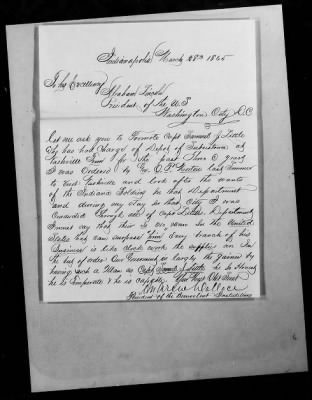 Indianapolis March 28th 1865
To his Excellency
Abraham Lincoln
President of the U.S
Washington City D.C
Let me ask you to Promote Capt Samuel J Little
he has had charge of Depot of Subsistence at
Nashville Tenn for the past Two years
I was Ordered by Gov. O.P. Morton last Summer
to visit Nashville and look after the wants
of the Indiana Soldiers in that Department
and during my Stay in that City I was
through all of Capt Littles Department
I must say that there is no man in the United
States that can surpass him in any branch of his
Business is like clock work the supplies are in
the best of order Our Government is largely the gainer by
having such a Man as Capt Samuel J Little he is Honest
he is Temperate & he is capable
Your Obt Servt
Wallace
President of the